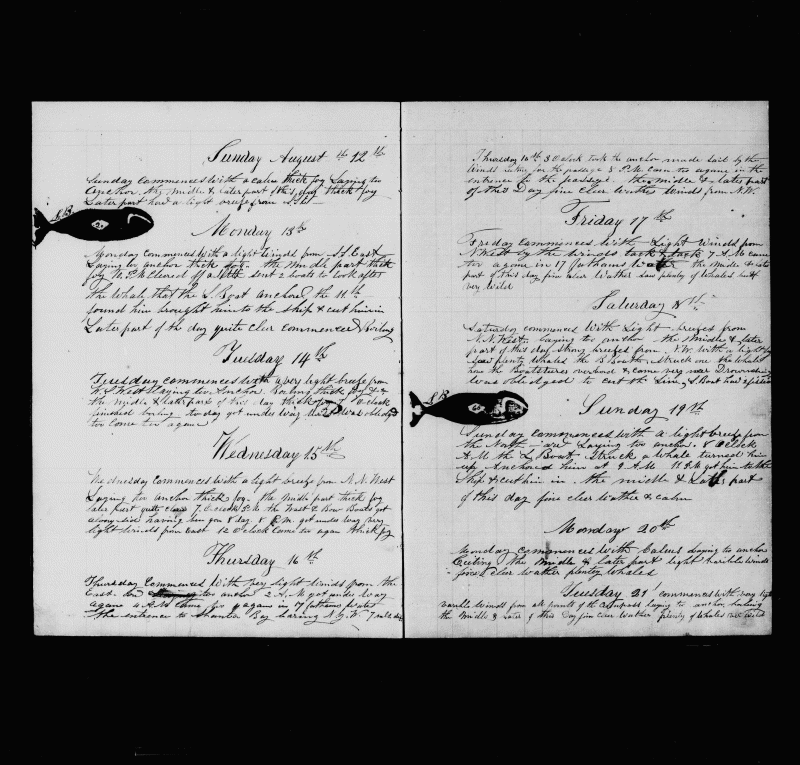 Sunday August th 12th
Sunday commences with a calm thick fog Laying too
Anchor the midle & later part this day thick fog
Later part had a light breefe from
S B
Monday 13th
Monday commences with a light winds from S. East
Laying to anchor thick fog the midle part thick
fog P.M. Clered off a little sent 2 boats to look after
the Whale that the S Boat anchored the 11th
found him brought him to the Ship & cut him in
Later part of the day quite cler commenced Boiling
Tuesday 14th
Tuesday commences with a very light breefe from
S. West Laying too Anchor Boiling thick fog
the midle & later part of this day thick fog O clock
finished boiling to day got under way was oblidged
too come too agane
Wednesday 15th
Wednesday commences with a light breefe from N. N. West
Laying too anchor thick fog the midle part thick fog
later part quite cler 7. O clock P.M. the Wast & Bow Boats got
along side having been gon 8 day 8 P.M. got under way very
light winds from East 12 O clock Came too agan thick fog
Thursday 16th
Thursday Commences With Very light Winds from the
East too anchor 2 A.M. got under way
agane 4 A.M. Came too agane in 17 fathoms water
the entrence to Shantar Bay baring N. by W. 7
Thursday 16th 3 O clock took the anchor made sail by the
winds for the passage 8 P.M. came too agane in the
entrence to the passage. the midle & later part
of this Day fine cler wather winds from N.W.
Friday 17th
Friday commences with Light Winds from
N West by the winds tack & tack 7 A.M came
too agane in 17 fathoms water the midle & later
part of this day fine cler wather saw plenty of Whales but
very wild
Saturday 18th
Saturday commences With Light breefes from
N. N. West. laying too anchor the midle & later
part of this day Strong breefes from N.W. With a light fog
Saw plenty Whales the B Boat Struck one the Whale
the Boatsteres overbord & came very near Drownding
Was oblidged to cut the Line, S. Boat had a
S B
Sunday 19th
Sunday commences with a light breefe from
the North are Laying too anchor. 8 O clock
A.M the L Boat Struck a whale turned him
up Anchored him at 9 A.M 11 P.M got him to the
Ship & cut him in the midle & Later part
of this day fine cler wather & calm
Monday 20th
Monday commences with Calms Laying to anchor
Cutting the midle & later part light varible winds
fine & Cler Wather plenty Whales
Tuesday 21 commences with very light
varible winds from all points of the compass Laying to anchor, boiling
the midle & Later of this Day fine Cler Wather plenty of Whales